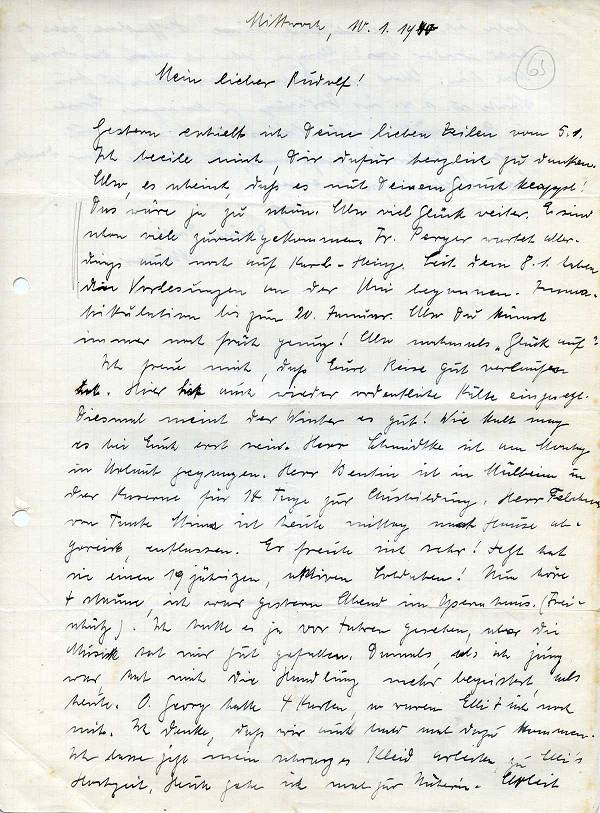 Mittwoch, 10.1.1940
63
Mein lieber Rudolf!
Gestern erhielt ich Deine lieben Zeilen vom 5.1.
Ich beeile mich, Dir dafür herzlich zu danken.
Also, es scheint, daß es mit Deinem Gesuch klappt!
Das wäre ja zu schön. Also viel Glück weiter. Es sind
schon viele zurückgekommen. Fr. Perger wartet aller-
dings auch noch auf Karl-Heinz. Seit dem 8.1. haben
die Vorlesungen an der Uni begonnen. Imma-
trikulation bis zum 20. Januar. Also Du kämst
immer noch früh genug! Also nochmals "Glück auf"!
Ich freue mich, daß Eure Reise gut verlaufen
hat. Hier hat auch wieder ordentliche Kälte eingesetzt.
Diesmal meint der Winter es gut! Wie kalt mag
es bei Euch erst sein. Herr Schmidtke ist am Montag
in Urlaub gegangen. Herr Bentin ist in Mülheim in
der Kaserne für 10 Tage zur Ausbildung. Herr
von Tante ist heute mittag nach Hause ab-
gereist, entlassen. Er freute sich sehr! Jetzt hat
sie einen 19 jährigen, aktiven Soldaten! Nun höre
+ staune, ich war gestern Abend im Opernhaus. (Frei-
schütz). Ich hatte es ja vor Jahren gesehen, aber die
Musik hat mir gut gefallen. Damals, als ich jung
war, hat mich die Handlung mehr begeistert, als
heute. O. Georg hatte 4 Karten, so waren Elli + ich noch
mit. Ich denke, daß wir auch bald mal dazu kommen.
Ich lasse jetzt mein schwarzes Kleid arbeiten zu Elli's
Hochzeit, heute gehe ich mal zur Näherin.